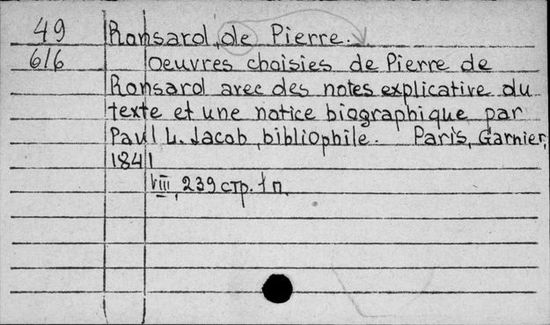 49 Ronsard, de Pierre.
616 Oeuvres choisies de Pierre de
Ronsard avec des notes explicative du
texte et une notice biographique par
Paul L. Jacob, bibliophile. Paris, Garnier,
1841
VIII, 239 стр. 1 п.